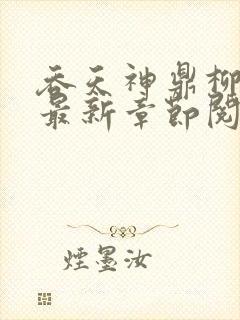 吞天神鼎柳
最新章节阅
煙墨汝